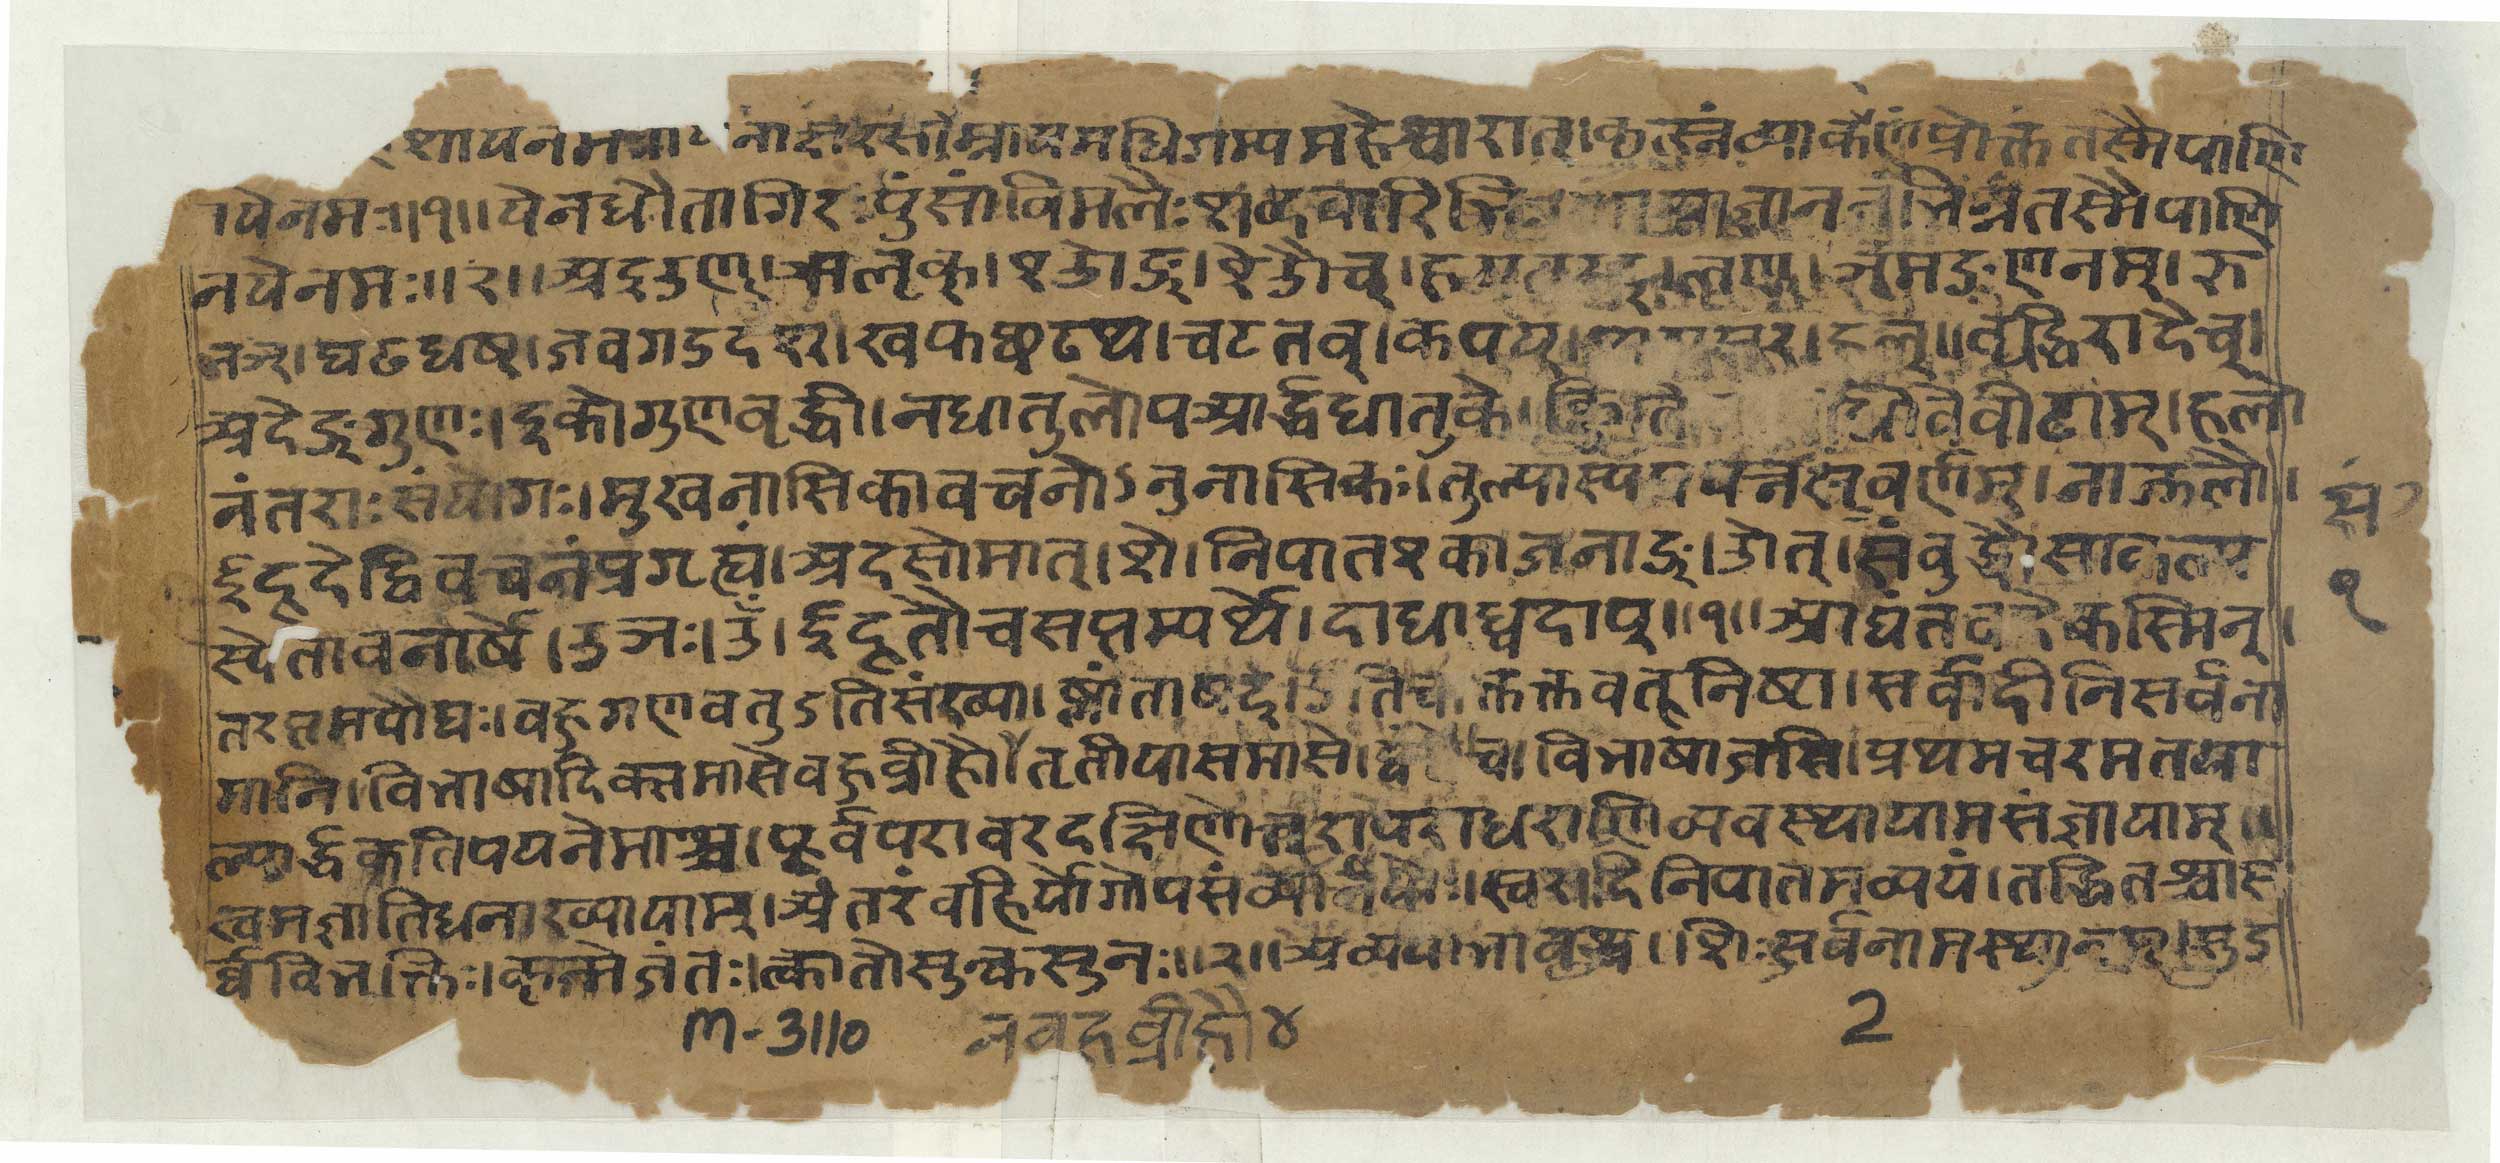 शायनम येनाक्षरसमाम्नायमधिगम्य महेश्वारात्। कृत्स्नं व्याकर्णं प्रोक्तं तस्मै पाणि
नयेनमः॥१॥ येन धौता गिरः पुंसां विमलैः शब्दवारिभिः ज्ञानजं भिन्नं तस्मै पाणि
नयेनमः॥२॥ अइउण्। ऋलृक्। एओङ्। ऐऔच्। हयवरट्। लण्। ञमङणनम्। झ
भञ्। घढधष्। जबगडदश्। खफछठथ। चटतव्। कपय्। शषसर्। हल्॥ वृद्धिरादैच्।
अदेङ्गुणः। इको गुणवृद्धी। न धातुलोप आर्द्धधातुके। क्ङिति धीवेवीटाम्। हलो
नंतराः संयोगः। मुखनासिकावचनोऽनुनासिकः। तुल्यास्यप्रयत्नं सवर्णम्। नाज्झलौ।
ईदूदेद्द्विवचनं प्रगृह्यं। अदसो मात्। शे। निपात एकाजनाङ्। ओत्। संबुद्धौ साकल्य
स्येतावनार्षे। उञः। ऊँ। ईदूतौ च सप्तम्यर्थे। दाधाघ्वदाप्॥१॥ आद्यंतवदेकस्मिन्।
तरप्तमपौ घः। बहुगणवतुडति संख्या। ष्णांता षट्। डति च। क्तक्तवतू निष्टा। सर्वादीनि सर्वना
मानि। विभाषा दिक्समासे बहुव्रीहौ। तृतीयासमासे। द्वंद्वे च। विभाषा जसि। प्रथमचरमतया
ल्पार्द्धकतिपयनेमाश्च। पूर्वपरावरदक्षिणोत्तरापराधराणि व्यवस्थायामसंज्ञायाम्॥
स्वमज्ञातिधनाख्यायाम्। अंतरं बहिर्योगोपसंव्यानयोः। स्वरादिनिपातमव्ययं। तद्धितश्चास
र्वविभक्तिः। कृन्मेजंतः। त्क्वातोसुन्कसुनः॥२॥ अव्ययीभावश्च। शि सर्वनामस्थानम्। सुड
न बहुव्रीहौ ४
१
m-3110
2